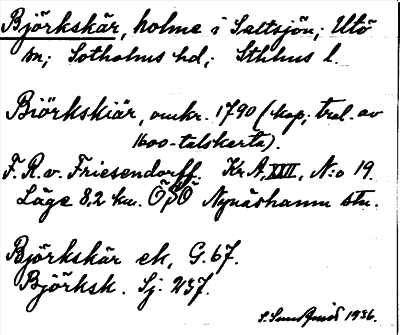 Björkskär, holme i Saltsjön; Utö
sn; Sotholms hd; Sthlms l.
Biörkskiär, omkr. 1790 (kop; trol. av
1600-talskarta).
F. R. v. Friesendorff. Kr A, XXII, N:o 19.
Läge 8,2 km. ÖSÖ Nynäshamn stn.
Björkskär ek, G. 67.
Björksk. Sj: 237.
S. Sundqvist 1936.